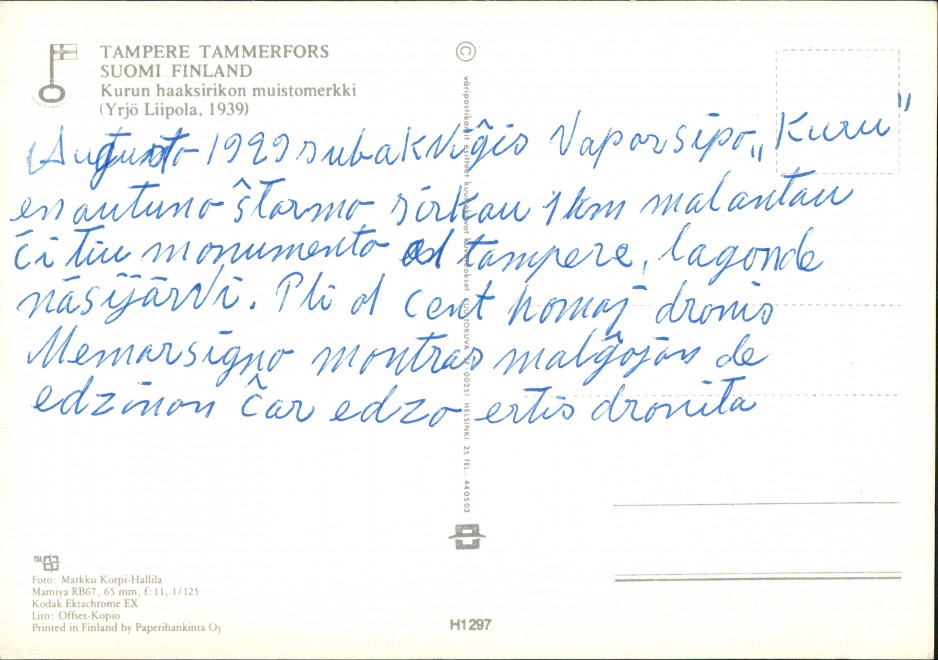 TAMPERE TAMMERFORS
SUOMI FINLAND
Kurun haaksirikon muistomerkki
(Yrjö Liipola, 1939)
©
Augusto 1929 subakviĝis Vaporsipo „Kuru”
en autuno ŝtormo cirkau 1km malantau
ĉi tiu monumento ed tampere, lagonde
näsijärvi. Pli ol cent homoj dronis
Memorsigno montras malĝojon de
edzinon ĉar edzo estis dronita
KUVATOKUVA - 00251 HELSINKI 25 TEL. 440503
TSL
Foto: Markku Korpi-Hallila
Mamiya RB67, 65 mm, f:11, 1/125
Kodak Ektachrome EX
Lito: Offset-Kopio
Printed in Finland by Paperihankinta Oy
H1297